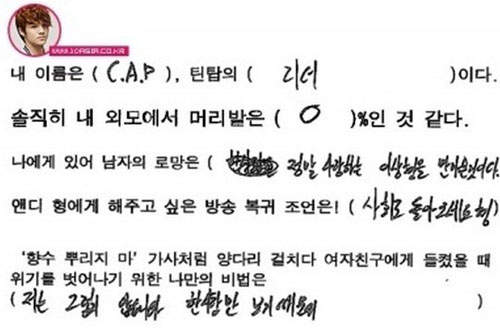 WWW.10ASIA.CO.KR
내 이름은 ( C.A.P ), 틴탑의 ( 리더 )이다.
솔직히 내 외모에서 머리발은 ( 0 )%인 것 같다.
나에게 있어 남자의 로망은 ( 정말 사랑하는 이상형을 만나는것이다.
앤디 형에게 해주고 싶은 방송 복귀 조언은! ( 사회로 돌아오세요 형)
‘향수 뿌리지 마’ 가사처럼 양다리 걸치다 여자친구에게 들켰을 때
위기를 벗어나기 위한 나만의 비법은
( 저는 그럴리 없습니다 한사람만 보기때문에 )